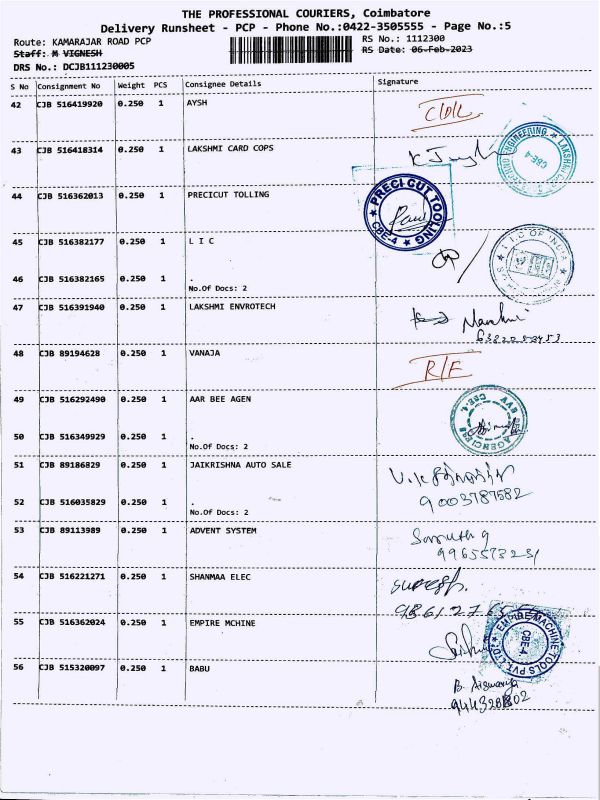 THE PROFESSIONAL COURIERS, Coimbatore
Delivery Runsheet - PCP - Phone No.:0422-3505555 - Page No.:5
Route: KAMARAJAR ROAD PCP RS No.: 1112300
Staff: M VIGNESH RS Date: 06-Feb-2023
DRS No.: DCJB111230005
S No Consignment No Weight PCS Consignee Details Signature
42 CJB 516419920 0.250 1 AYSH
43 CJB 516418314 0.250 1 LAKSHMI CARD COPS
44 CJB 516362013 0.250 1 PRECICUT TOLLING
PRECI CUT TOOLING
CBE-4
45 CJB 516382177 0.250 1 L I C
L I C OF INDIA
46 CJB 516382165 0.250 1 .
No.Of Docs: 2
47 CJB 516391940 0.250 1 LAKSHMI ENVROTECH
48 CJB 89194628 0.250 1 VANAJA
49 CJB 516292490 0.250 1 AAR BEE AGEN
50 CJB 516349929 0.250 1 .
No.Of Docs: 2
51 CJB 89186829 0.250 1 JAIKRISHNA AUTO SALE
9003787582
52 CJB 516035829 0.250 1 .
No.Of Docs: 2
53 CJB 89113989 0.250 1 ADVENT SYSTEM
54 CJB 516221271 0.250 1 SHANMAA ELEC
55 CJB 516362024 0.250 1 EMPIRE MCHINE
EMPIRE MACHINE TOOLS PVT. LTD.
CBE-4
56 CJB 515320097 0.250 1 BABU
B. Aiswarya